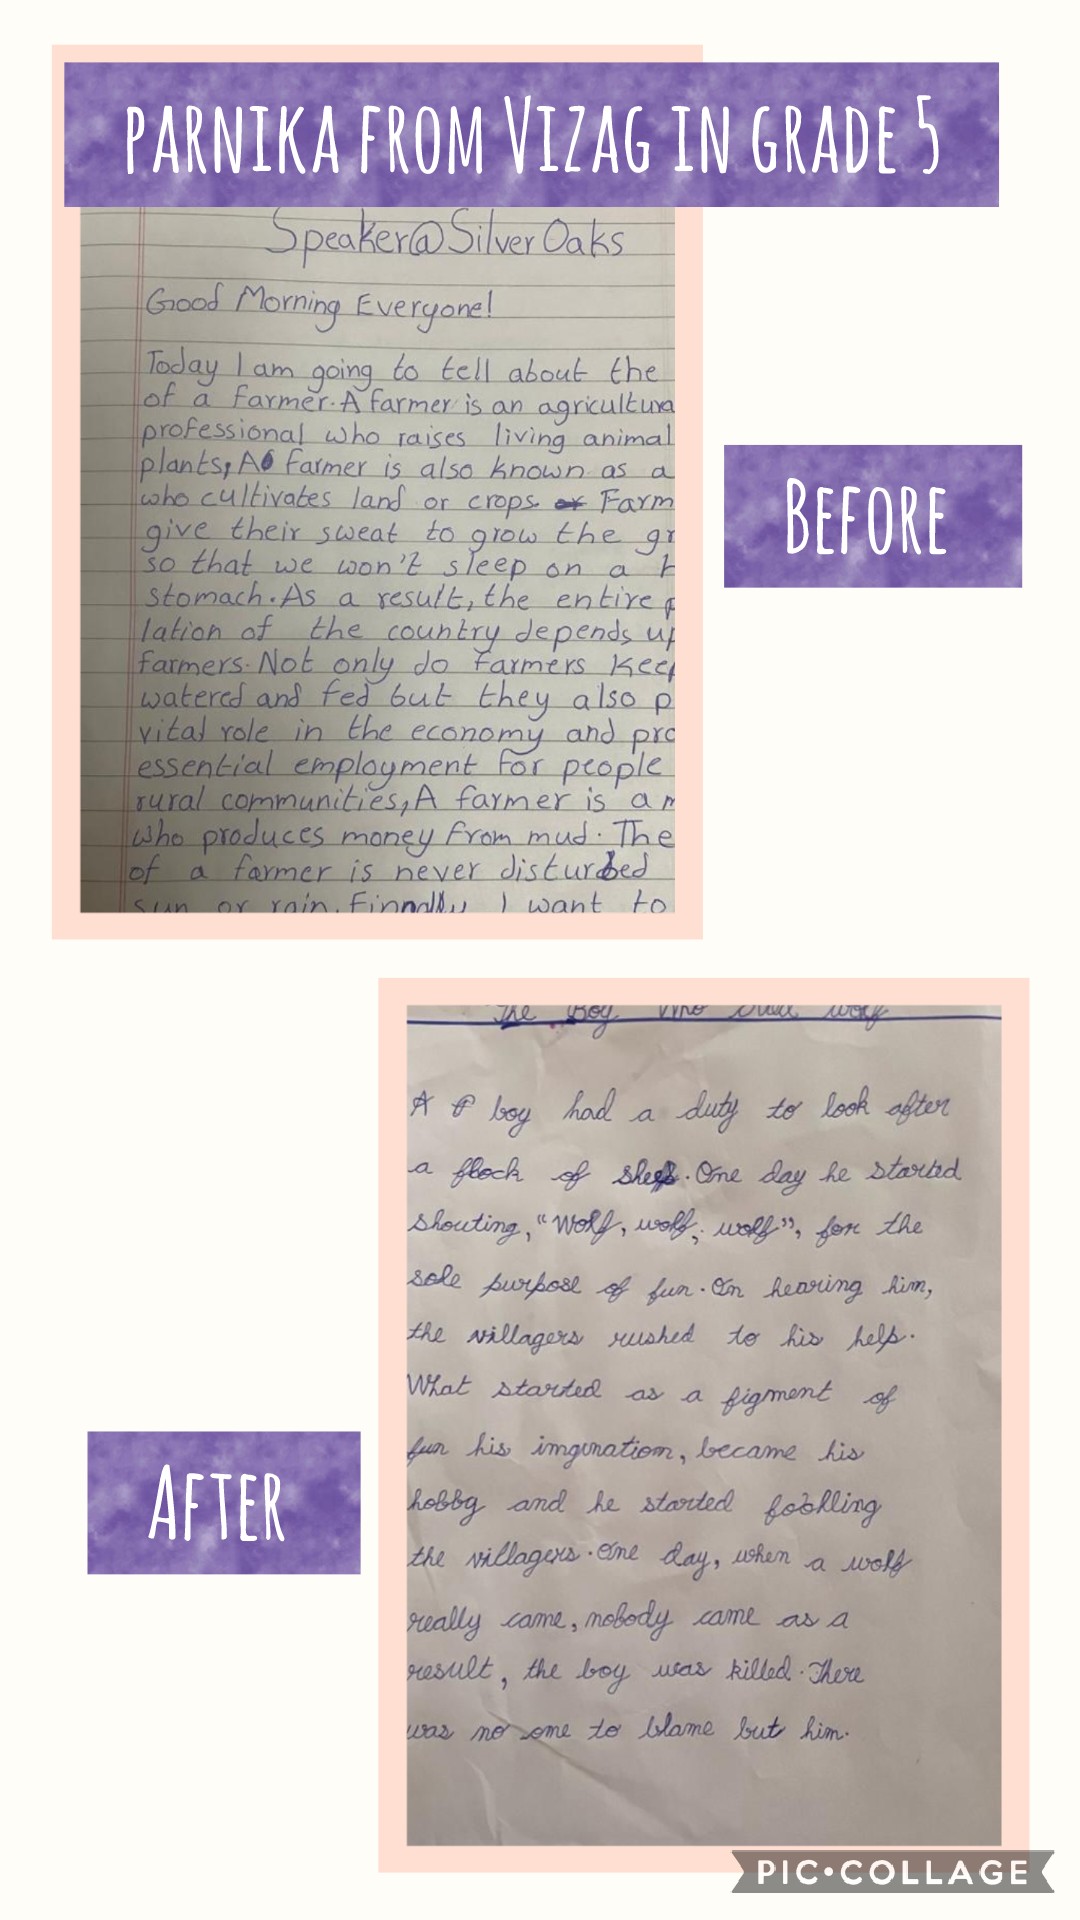 PARNIKA FROM VIZAG IN GRADE 5
Speaker@Silver Oaks
Good Morning Everyone!
Today I am going to tell about the
of a farmer. A farmer is an agricultura
professional who raises living animal
plants, A farmer is also known as a
who cultivates land or crops or Farm
give their sweat to grow the gr
so that we won't sleep on a h
stomach. As a result, the entire p
lation of the country depends up
farmers. Not only do farmers keep
watered and fed but they also p
vital role in the economy and pro
essential employment for people
rural communities, A farmer is a m
who produces money from mud. The
of a farmer is never disturbed
sun or rain. Finally I want to
BEFORE
The Boy Who cried wolf
A boy had a duty to look after
a flock of sheep. One day he started
shouting, "Wolf, wolf, wolf", for the
sole purpose of fun. On hearing him,
the villagers rushed to his help.
What started as a figment of
fun his imginatiom, became his
hobby and he started
the villagers. One day, when a wolf
really came, nobody came as a
result, the boy was killed. There
was no one to blame but him.
AFTER
PIC•COLLAGE